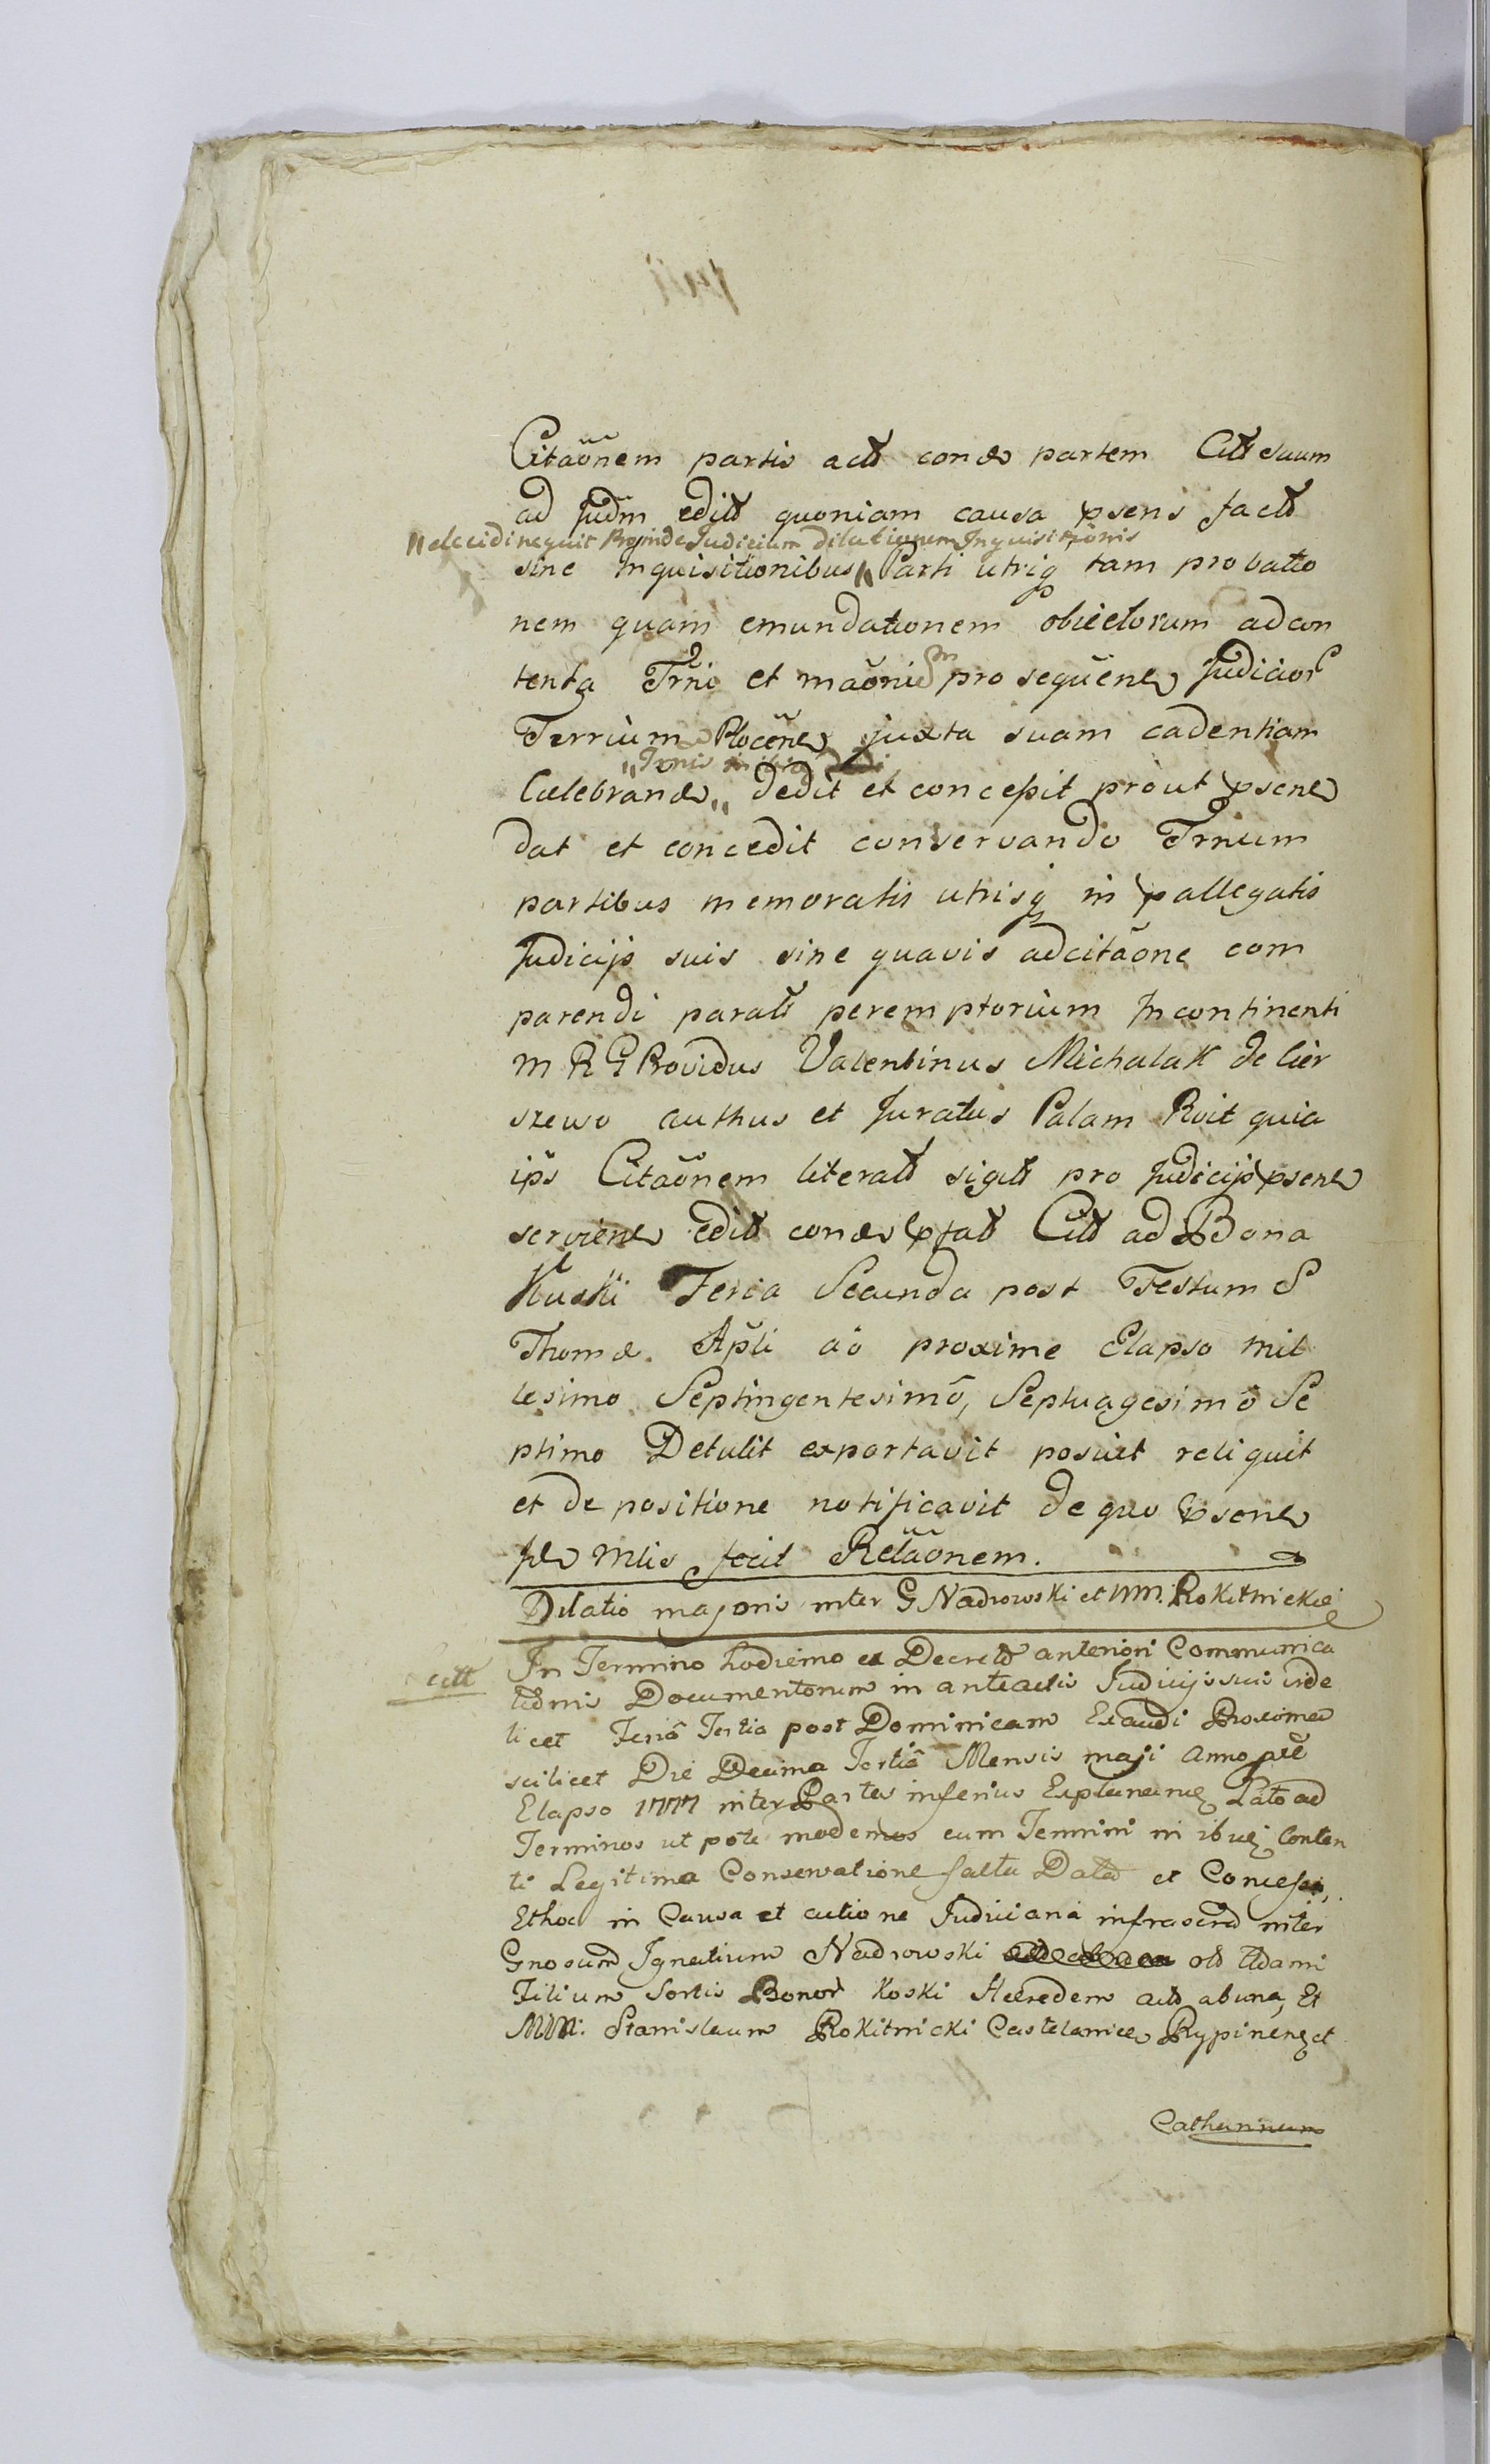 Citaõnem partis act contra partem Citt suum
ad Judm edit quoniam causa psens fact
"decidi nequit Proinde Judicium dilationem Inquisitionis
sine Inquisitionibus" Parti utriq tam probatio
nem quam emundationem obiectorum ad con
tenta Trni et maõnis pro sequene Judicior
Terrium Plocene juxta suam cadentiam
"Trnis
Celebrand" dedit et concessit prout psene
dat et concedit conservando Trnum
partibus memoratis utrisq in pallegatis
Judicijs suis sine quavis adcitaõne com
parendi parat peremptorium Incontinenti
M R G Providus Valentinus Michalak de Cier
szewo authus et Juratus Palam Rvit quia
ips Citaõnem literat sigilt pro Judicijs psene
serviene edit contra pfat Citt ad Bona
Kuski Feria Secunda post Festum S
Thomæ Apli aõ proxime Elapso mil
lesimo Septingentesimõ, Septuagesimõ Se
ptimo Detulit exportavit posuit reliquit
et de positione notificavit de quo psene
mlis fecit Relaõnem.
Dilatio majoris inter G Nadrowski et MM. Rokitnickie
citt
In Termino hodierno ex Decreto anteriori Communica
tionis Documentorum in anteactis Judicijs suis vide
licet Feriâ Tertia post Dominicam Exaudi Proxima
scilicet Die Decima Tertiâ Mensis maji Anno
Elapso 1777 inter Partes inferius Lato ad
Terminos ut pote modernos cum Termini in ibiq Conten
ti Legitima Conservatione facta Dato et Concesso,
Ethoc in Causa et actione Judiciaria infrascrip inter
Gnosum Ignatium Nadrowski old Adami
Filium Sortis Bonor Koski Hæredem act ab una, Et
MM: Stanislaum Rokitnicki Castelanice Rypinen, et
Catharinam